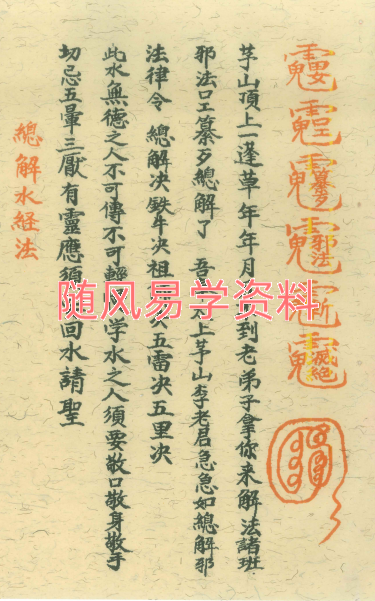 纂歹
邪法
滅絕
茅山頂上一蓬草年年月到老弟子拿你来解法諸班
邪法口工纂歹總解了 吾上茅山李老君急急如總解邪
法律令 總解决鉄牛决祖决五雷决五里决
此水無德之人不可傳不可輕學水之人須要敬口敬身敬手
切忌五暈三厭有靈應須回水請聖
總解水経法
随风易学资料